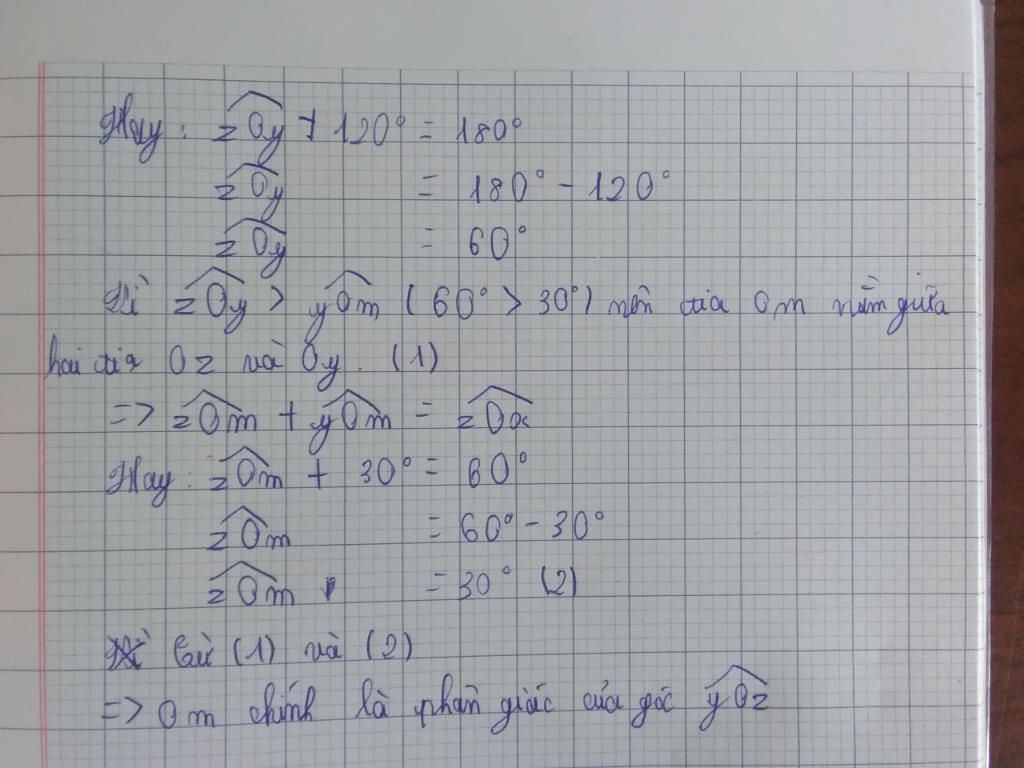 Hay : zOy + 120° = 180°
zOy = 180° - 120°
zOy = 60°
Vì zOy > yOm ( 60° > 30° ) nên tia Om nằm giữa
hai tia Oz và Oy. (1)
=> zOm + yOm = zOx
Hay : zOm + 30° = 60°
zOm = 60° - 30°
zOm = 30° (2)
Từ (1) và (2)
=> Om chính là phân giác của góc yOz